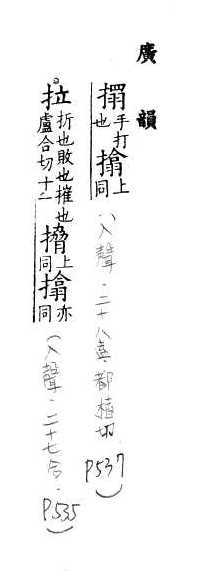 廣韻
搨手打也㩉上同(入聲·二十八盍·都榼切 P537)
拉折也敗也摧也盧合切十二搚上同㩉亦同(入聲·二十七合·P.535)